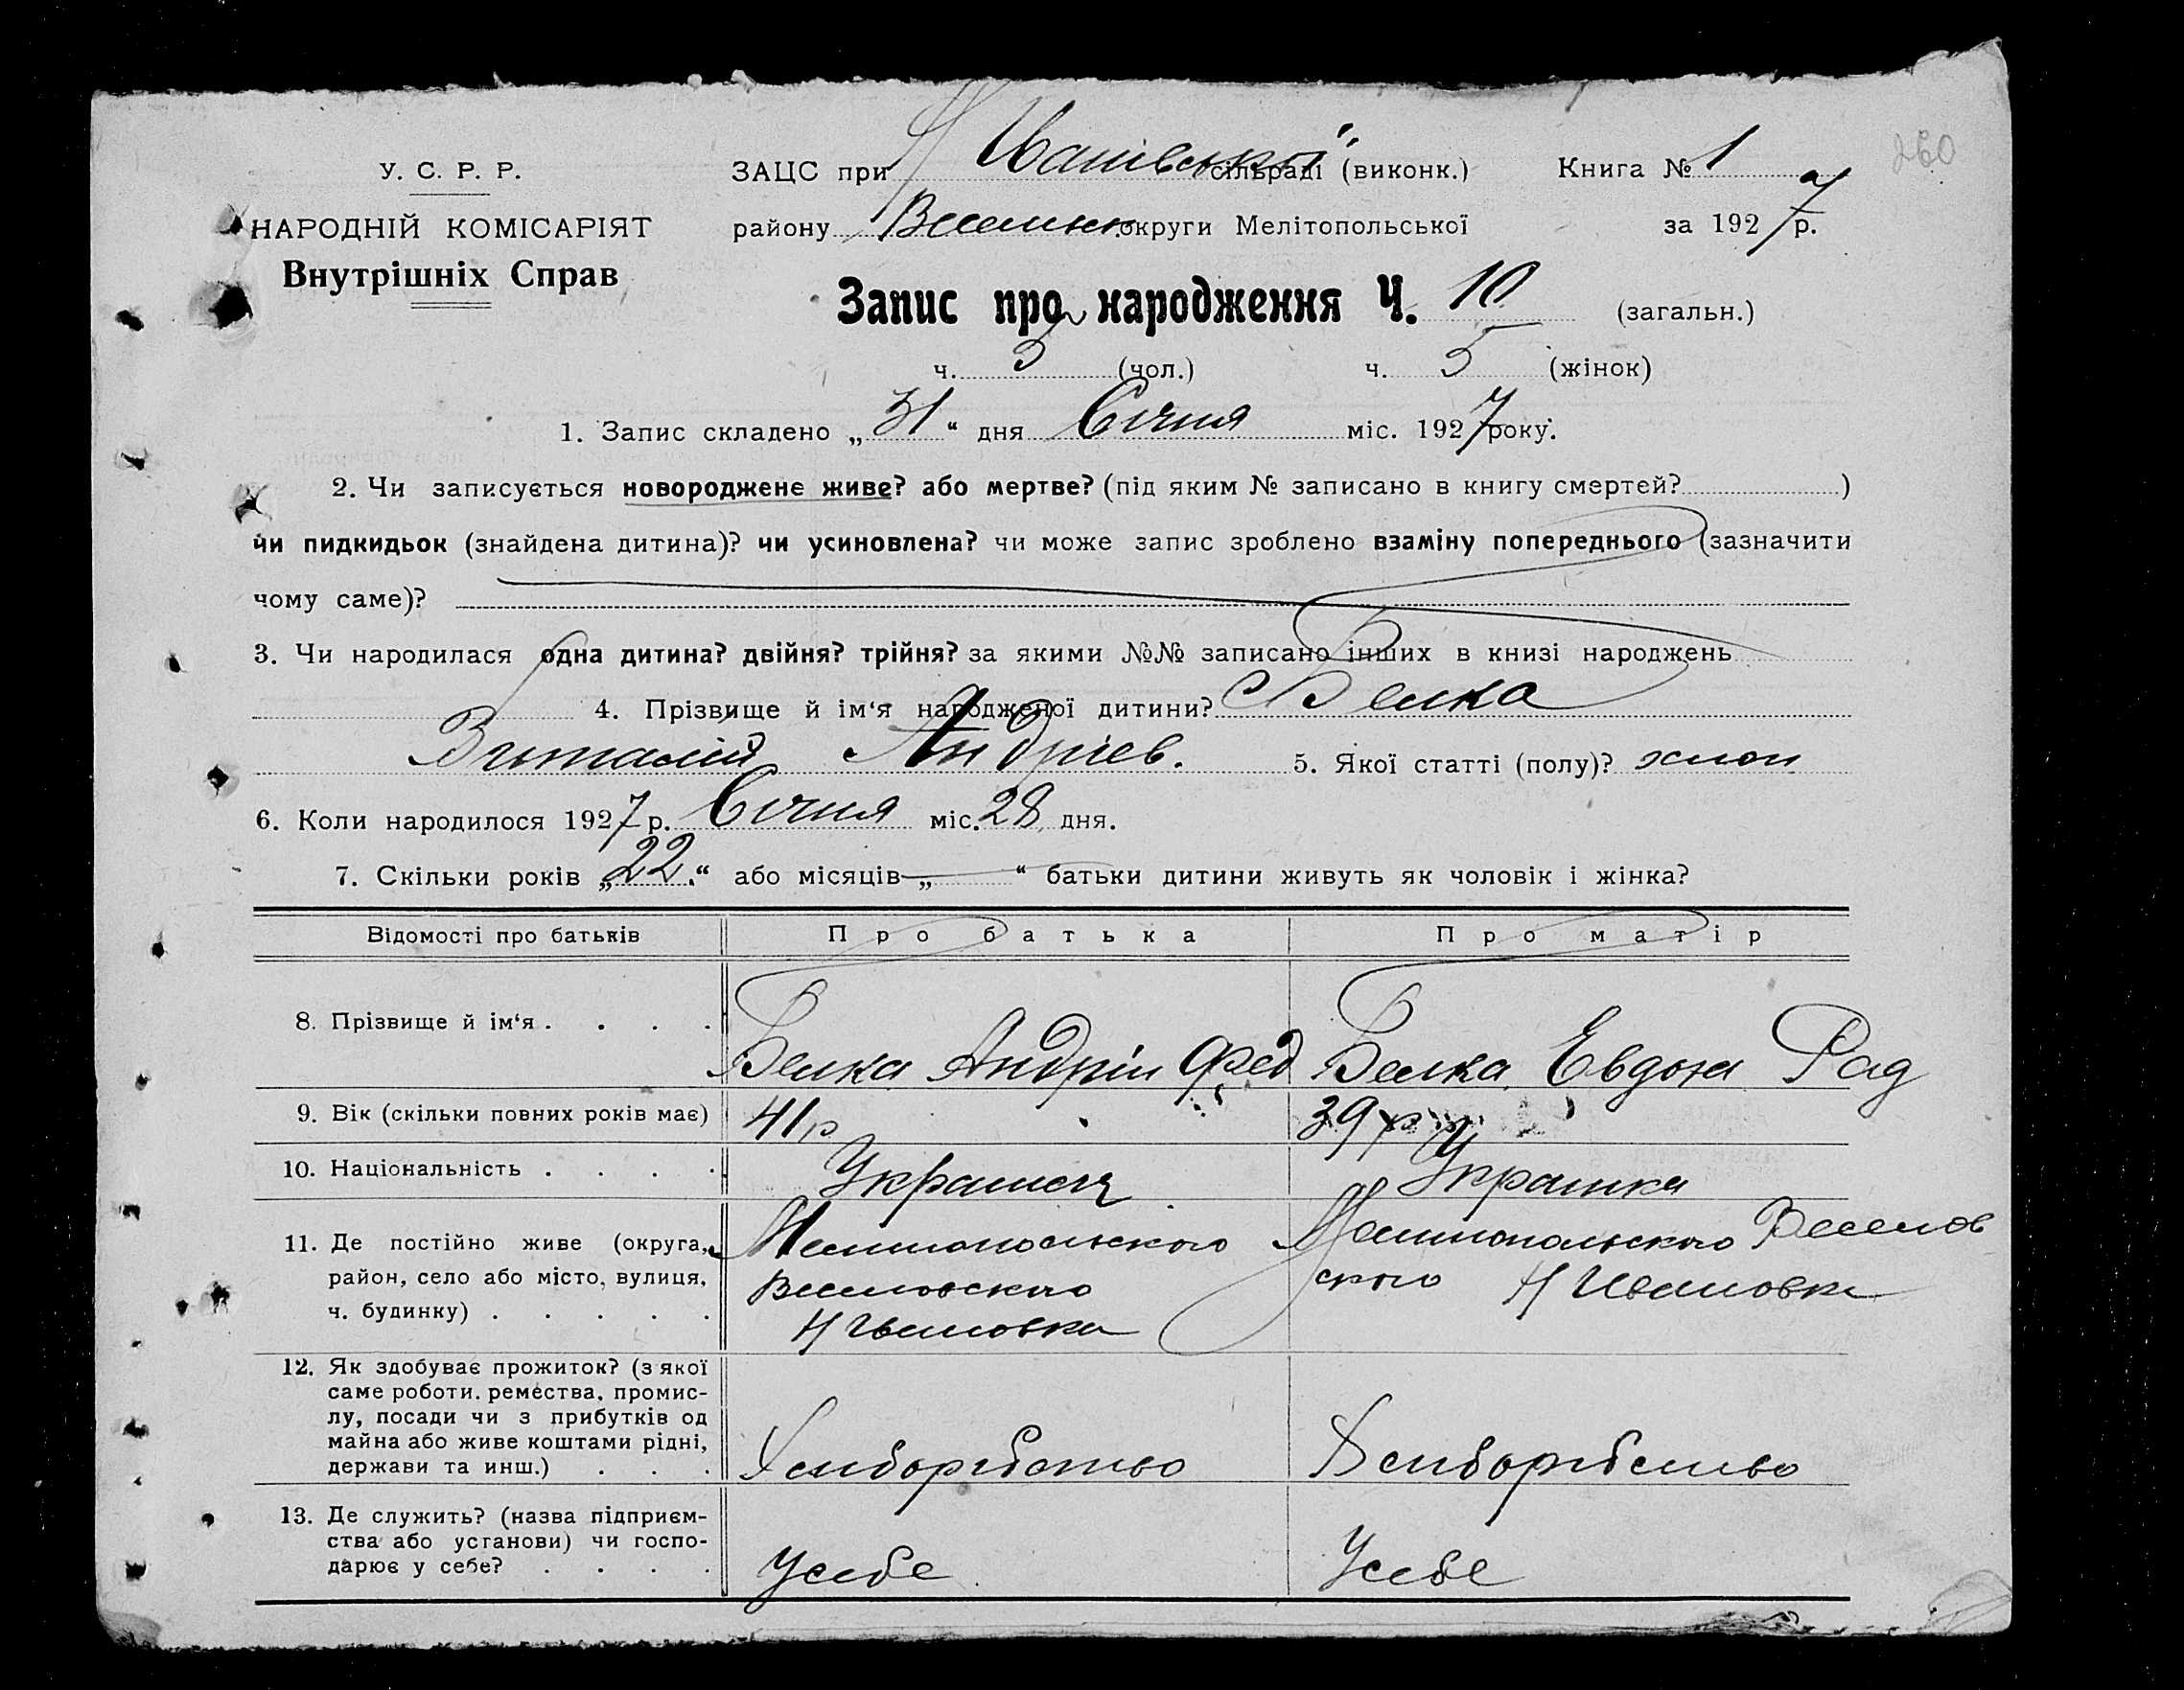 260
У. С. Р. Р.
НАРОДНІЙ КОМІСАРІЯТ
Внутрішніх Справ
ЗАЦС при Н Иванівській сільраді (виконк.) Книга № 1
району Веселих. округи Мелітопольської за 1927 р.
Запис про народження Ч. 10 (загальн.)
ч. 5 (чол.) ч. 5 (жінок)
1. Запис складено „31“ дня Січня міс. 1927 року.
2. Чи записується новороджене живе? або мертве? (під яким № записано в книгу смертей? )
чи пидкидьок (знайдена дитина)? чи усиновлена? чи може запис зроблено взаміну попереднього (зазначити
чому саме)?
3. Чи народилася одна дитина? двійня? трійня? за якими №№ записано інших в книзі народжень
4. Прізвище й ім‘я народженої дитини? Белка
Виталій Андріев. 5. Якої статті (полу)? хлоп.
6. Коли народилося 1927 р. Січня міс. 28 дня.
7. Скільки років „22“ або місяців „—“ батьки дитини живуть як чоловік і жінка?
Відомості про батьків Про батька Про матір
8. Прізвище й ім‘я . . . . Белка Андрій Фед Белка Евдокя Рад
9. Вік (скільки повних років має) 41 р 39 р
10. Національність . . . . Украинец Украинка
11. Де постійно живе (округа, Мелитопольского Мелитопольского Веселов
район, село або місто, вулиця, Веселовского ского Н Ивановка
ч. будинку) . . . . . Н Ивановка
12. Як здобуває прожиток? (з якої
саме роботи, ремества, промис-
лу, посади чи з прибутків од
майна або живе коштами рідні,
держави та инш.) . . . Хлиборобство Хлиборобство
13. Де служить? (назва підприєм-
ства або установи) чи госпо-
дарює у себе? . . . . У себе У себе